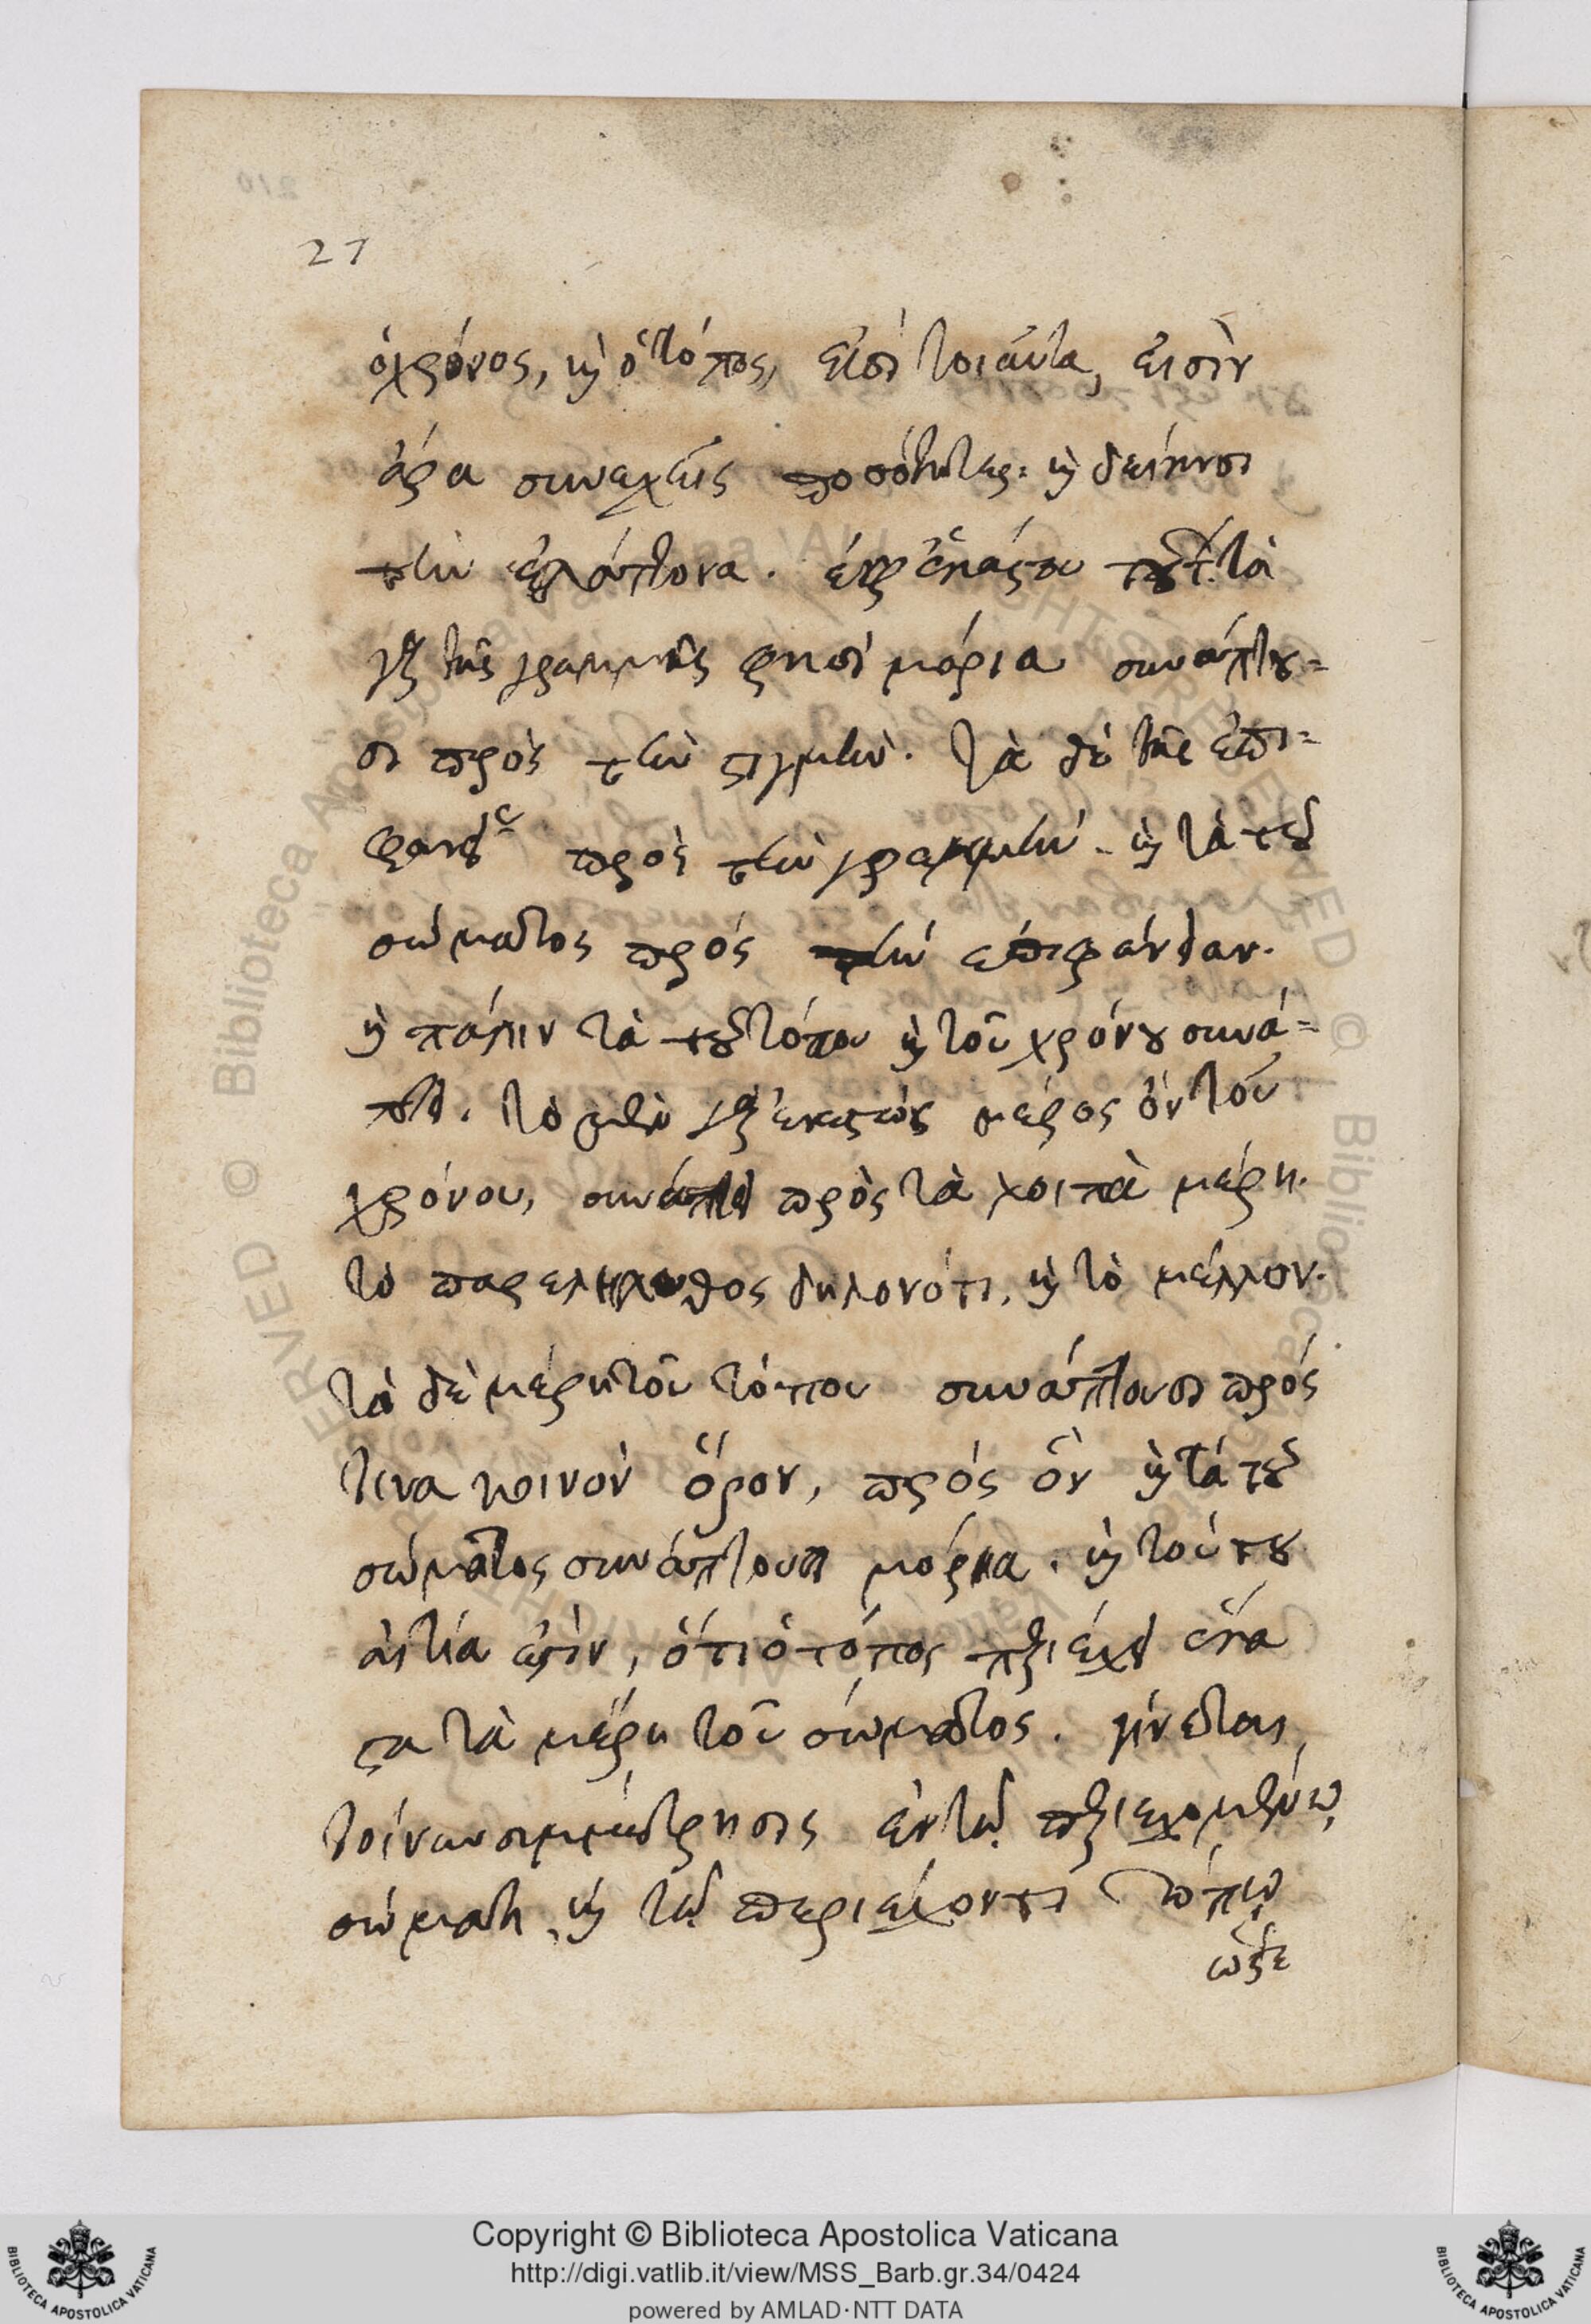 27
ὁ χρόνος, καὶ ὁ τόπος, εἰσὶ τοιαῦτα, εἰσὶν
ἄρα συνεχεῖς ποσότητες. καὶ δείκνυσι
τὴν ἐλάττονα. ἐφ' ἑκάστου τούτ. τὰ
γὰρ τῆς γραμμῆς φησὶ μόρια συνάπτου=
σι πρὸς τὴν στιγμήν. τὰ δὲ τῆς ἐπι=
φανείας πρὸς τὴν γραμμήν. καὶ τὰ τοῦ
σώματος πρός τήν ἐπιφάνειαν.
καὶ πάλιν τὰ τοῦ τόπου καὶ τοῦ χρόνου συνά=
πτει. τὸ μὲν γὰρ ἐνεστὼς μέρος ὂν τοῦ
χρόνου, συνάπτει πρὸς τὰ λοιπὰ μέρη.
τὸ παρεληλυθος δηλονότι, καὶ τὸ μέλλον.
τὰ δὲ μέρη τοῦ τόπου συνάπτουσι πρός
τινα κοινὸν ὅρον, πρός ὃν καὶ τά τοῦ
σώματος συνάπτουσι μόρια. καὶ τούτου
αἰτία ἐστὶν, ὅτι ὁ τόπος περιέχει ἕκα
στα τὰ μέρη τοῦ σώματος. γίνεται
τοίνυν συμμέτρησις ἐν τῷ περιεχομένῳ
σώματι, καὶ τῷ περιέχοντι τόπῳ
ὥστε
Copyright © Biblioteca Apostolica Vaticana
http://digi.vatlib.it/view/MSS_Barb.gr.34/0424
powered by AMLAD·NTT DATA
BIBLIOTECA APOSTOLICA VATICANA
BIBLIOTECA APOSTOLICA VATICANA